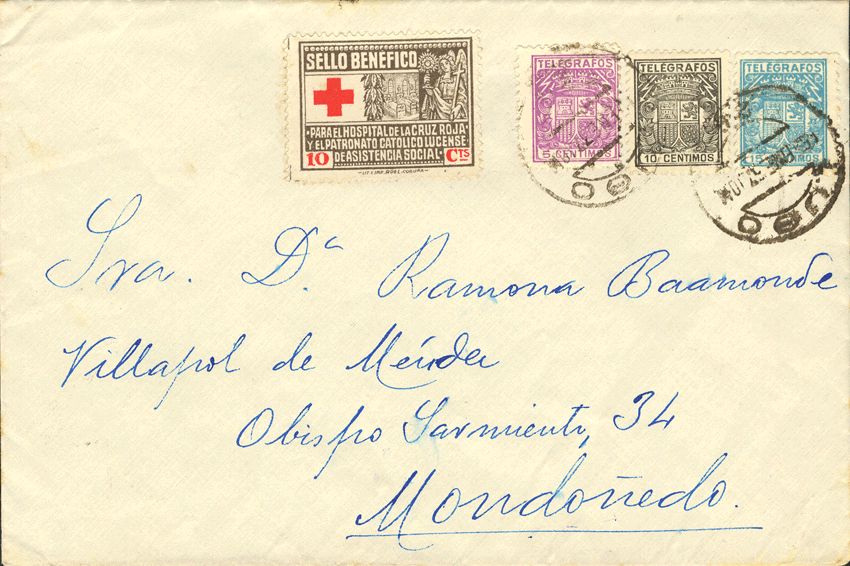 SELLO BENÉFICO
·PARA EL HOSPITAL DE LA CRUZ ROJA
Y EL PATRONATO CATOLICO LUCENSE
DE ASISTENCIA SOCIAL·
10 CTS
TELÉGRAFOS
5 CENTIMOS
TELÉGRAFOS
10 CENTIMOS
TELÉGRAFOS
15 CENTIMOS
LUGO
Sra. Dª Ramona Baamonde
Villapol de Méndez
Obispo Sarmiento, 34
Mondoñedo.